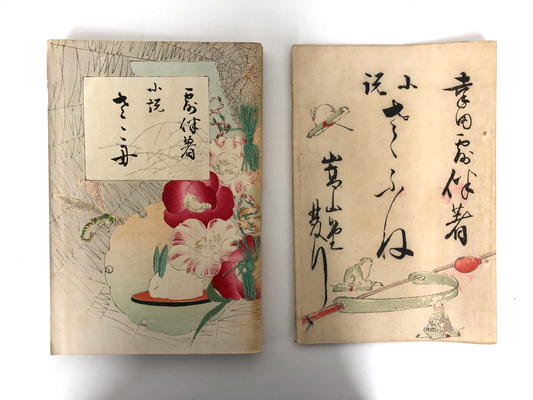 露伴著
小説
さゝ舟
幸田露伴著
小説
さゝふね
嵩山堂發行